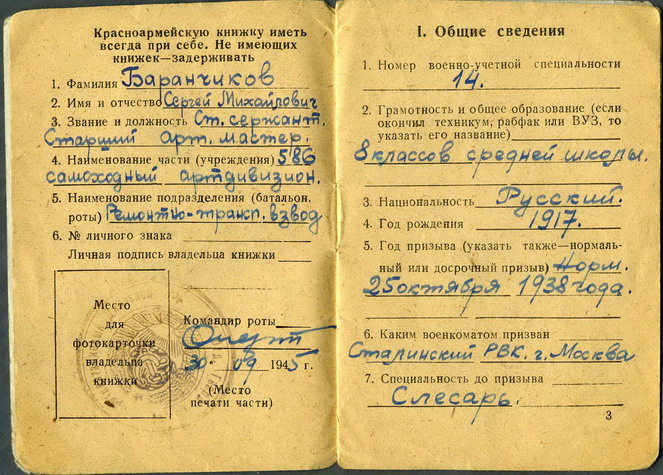 Красноармейскую книжку иметь
всегда при себе. Не имеющих
книжек—задерживать
1. Фамилия Баранчиков
2. Имя и отчество Сергей Михайлович
3. Звание и должность Ст. сержант.
Старший арт. мастер.
4. Наименование части (учреждения) 586
самоходный артдивизион.
5. Наименование подразделения (батальон,
роты) Ремонтно-трансп. взвод
6. № личного знака
Личная подпись владельца книжки
Место
для
фотокарточки
владельца
книжки
Командир роты
30 - 09 1945 г.
(Место
печати части)
I. Общие сведения
1. Номер военно-учетной специальности
14.
2. Грамотность и общее образование (если
окончил техникум, рабфак или ВУЗ, то
указать его название)
8 классов средней школы.
3. Национальность Русский.
4. Год рождения 1917.
5. Год призыва (указать также—нормаль-
ный или досрочный призыв) Норм.
25 октября 1938 года.
6. Каким военкоматом призван
Сталинский РВК. г. Москва
7. Специальность до призыва
Слесарь.
3